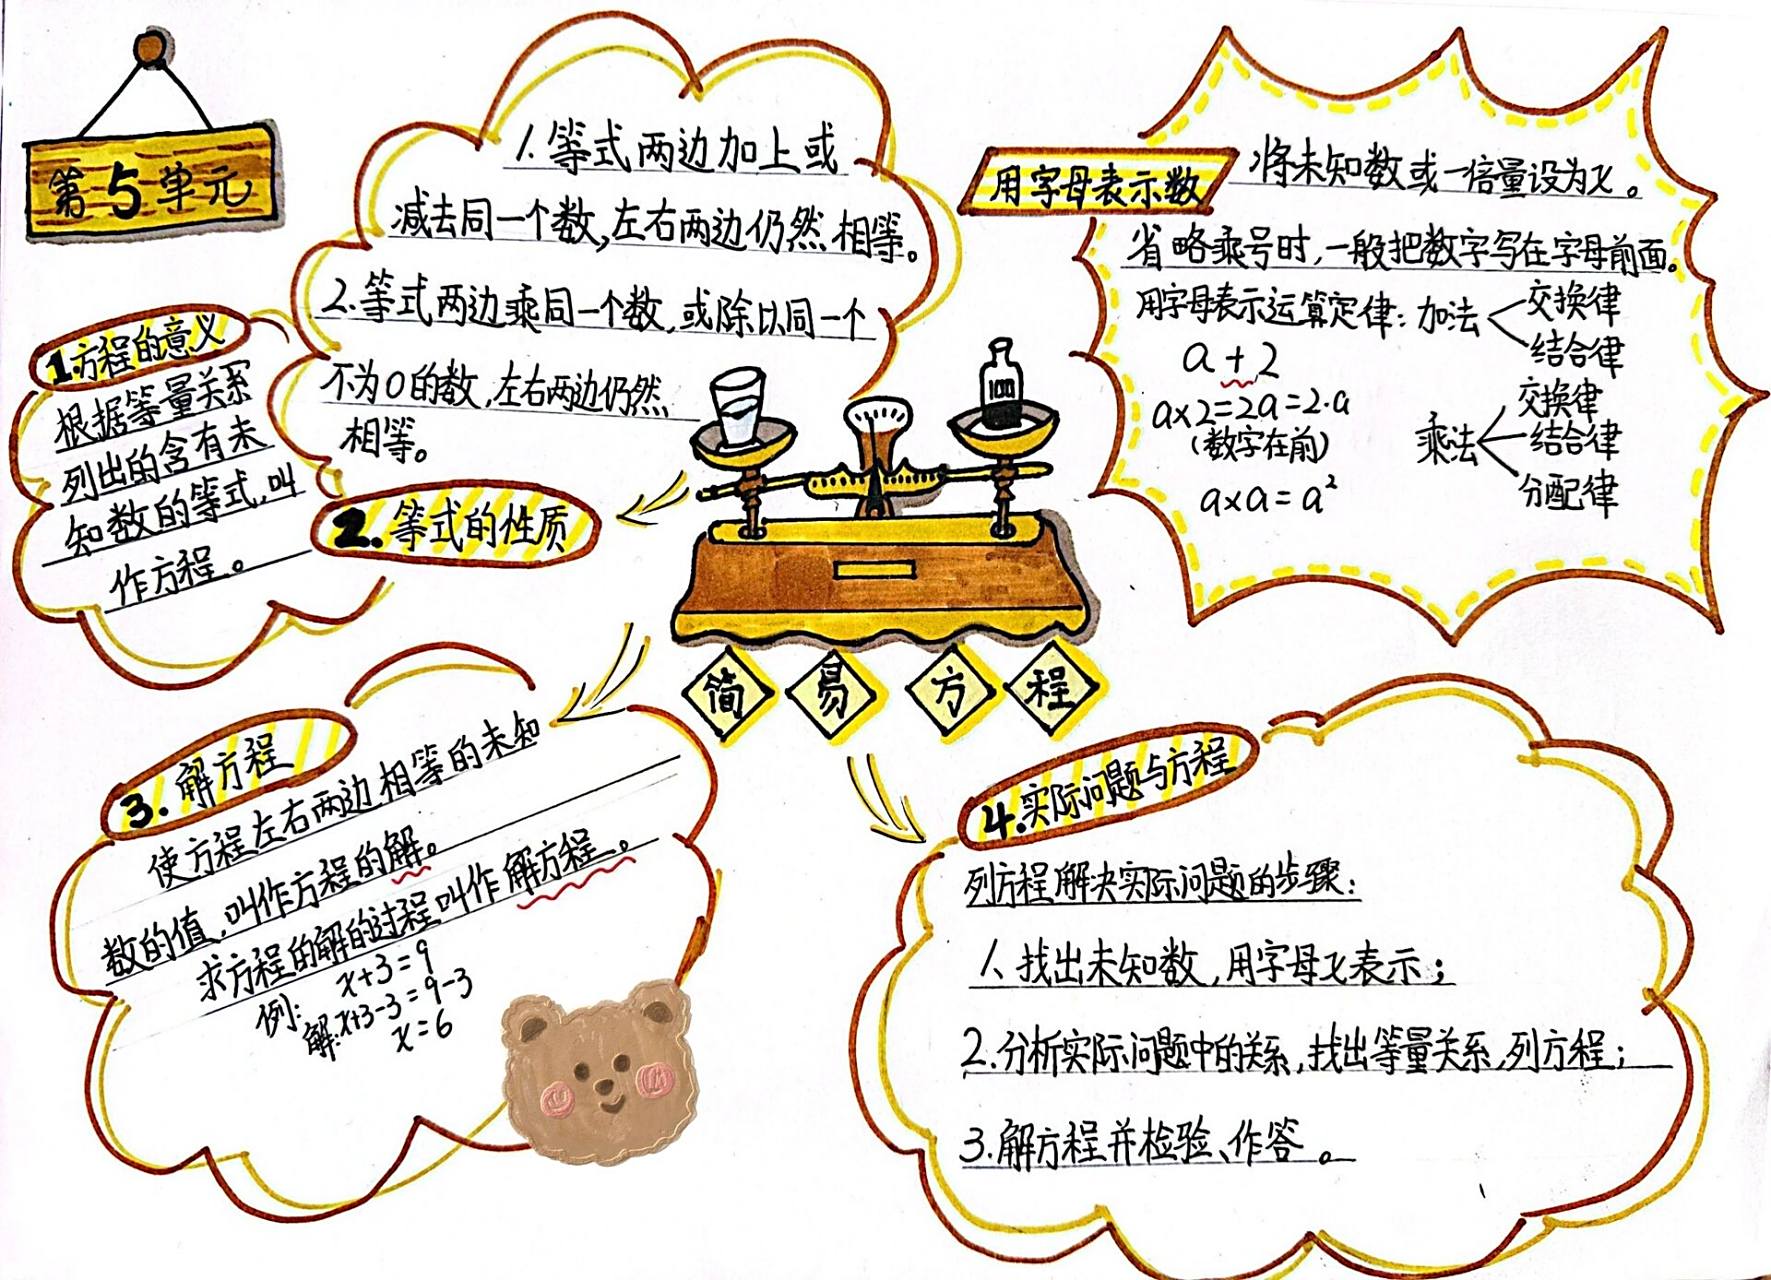 第5单元
1.等式两边加上或
减去同一个数,左右两边仍然相等。
2.等式两边乘同一个数,或除以同一个
不为0的数,左右两边仍然
相等。
2.等式的性质
1.方程的意义
根据等量关系
列出的含有未
知数的等式,叫
作方程。
用字母表示数
将未知数或一倍量设为x。
省略乘号时,一般把数字写在字母前面。
用字母表示运算定律:加法
交换律
结合律
a+2
a×2=2a=2·a
(数字在前)
a×a=a²
乘法
交换律
结合律
分配律
100
简易方程
3.解方程
使方程左右两边相等的未知
数的值,叫作方程的解。
求方程的解的过程叫作解方程。
例: x+3=9
解:x+3-3=9-3
x=6
4.实际问题与方程
列方程解决实际问题的步骤:
1.找出未知数,用字母x表示;
2.分析实际问题中的关系,找出等量关系,列方程;
3.解方程并检验、作答。